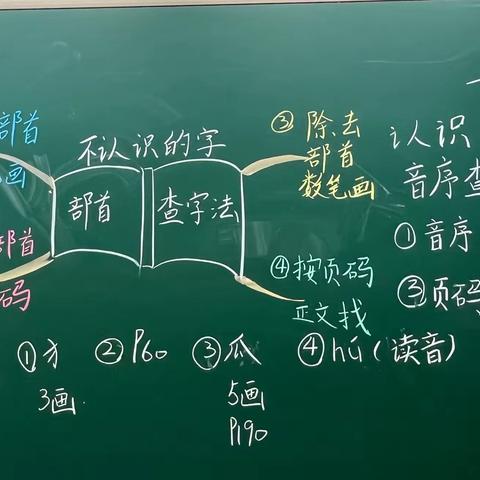 部首
画
部首
码
不认识的字
部首
查字法
③除去
部首
数笔画
④按页码
正文找
认识
音序查
①音序
③页码
①犭
3画
②P60
③瓜
5画
P190
④hú(读音)